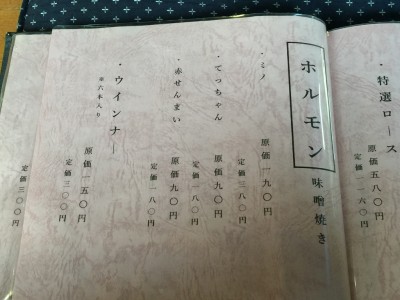 ・特選ロース
原価五八〇円
定価一一六〇円
ホルモン 味噌焼き
・ミノ
原価一九〇円
定価三八〇円
・てっちゃん
原価九〇円
定価一八〇円
・赤せんまい
原価九〇円
定価一八〇円
・ウインナー
※六本入り
原価一五〇円
定価三〇〇円
定価三〇〇円